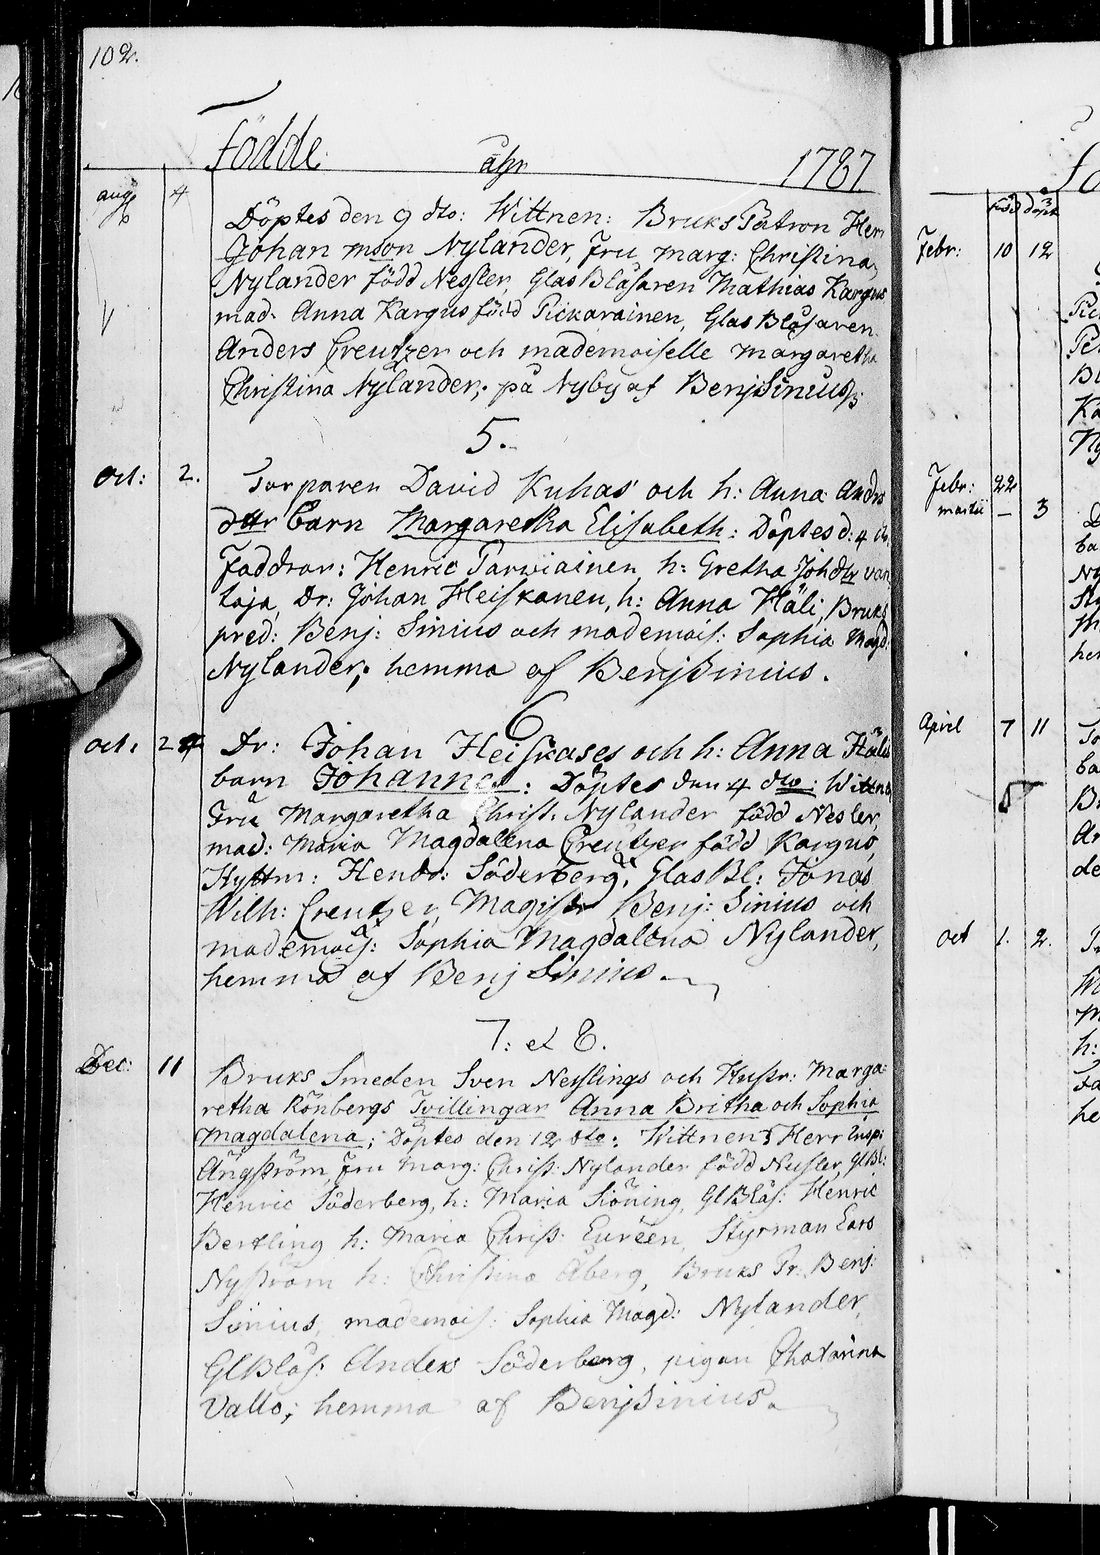 102.
Födde åhr 1787
aug 4
Döptes den 9 dto: Wittnen: Bruks Patron Herr
Johan mson Nylander, Fru marg: Christina
Nylander född Nessler, Glas Blåsaren Mathias Kargus
mad. Anna Kargus född Pickarainen, Glas Blåsaren
Anders Creutzer och mademoiselle margaretha
Christina Nylander; på Nyby af BenjSinius
5.
Oct: 2. Torparen David Kuhas och h: Anna Andrs
dttr barn Margaretha Elisabeth: Döptes d: 4 dto.
Faddrar: Henric Parwiainen h: Gretha Johdtr van
taja, Dr: Johan Heiskanen, h: Anna Häli, Bruks
pred: Benj: Sinius och mademois: Sophia Magd:
Nylander; hemma af BenjSinius.
6
Oct: 2 Dr: Johan Heiskases och h: Anna
barn Johannes: Döptes den 4 dto: Wittn
Fru Margaretha Christ. Nylander född Nesler,
mad: Maria Magdalena Creutzer född Kargus,
Hyttm: Hendr: Söderberg, GlasBl: Jonas
Wilh: Creutzer, Magistr Benj: Sinius och
mademois: Sophia Magdalena Nylander,
hemma af Benj Sinius.
7: et 8.
Dec: 11 Bruks Smeden Sven Neislings och Hustr: Marga:
retha Rönbergs Tvillingar Anna Britha och Sophia
Magdalena; Döptes den 12 dto: Wittnen: Herr Insp:
Ångström, Fru Marg: Christ: Nylander född Nesler, GlBl:
Henric Söderberg, h: Maria Siöning, GlBlås: Henric
Bertling h: Maria Christ: Eureen, Styrman Lars
Nyström h: Christina Åberg, Bruks Pr: Benj:
Sinius, mademois: Sophia Magd: Nylander,
GlBlås: Anders Söderberg, pigan Chatarina
Vallo; hemma af BenjSinius.
född döpt
Febr: 10 12
Febr: 22
martii — 3
April 7 11
5
Oct 1. 2.